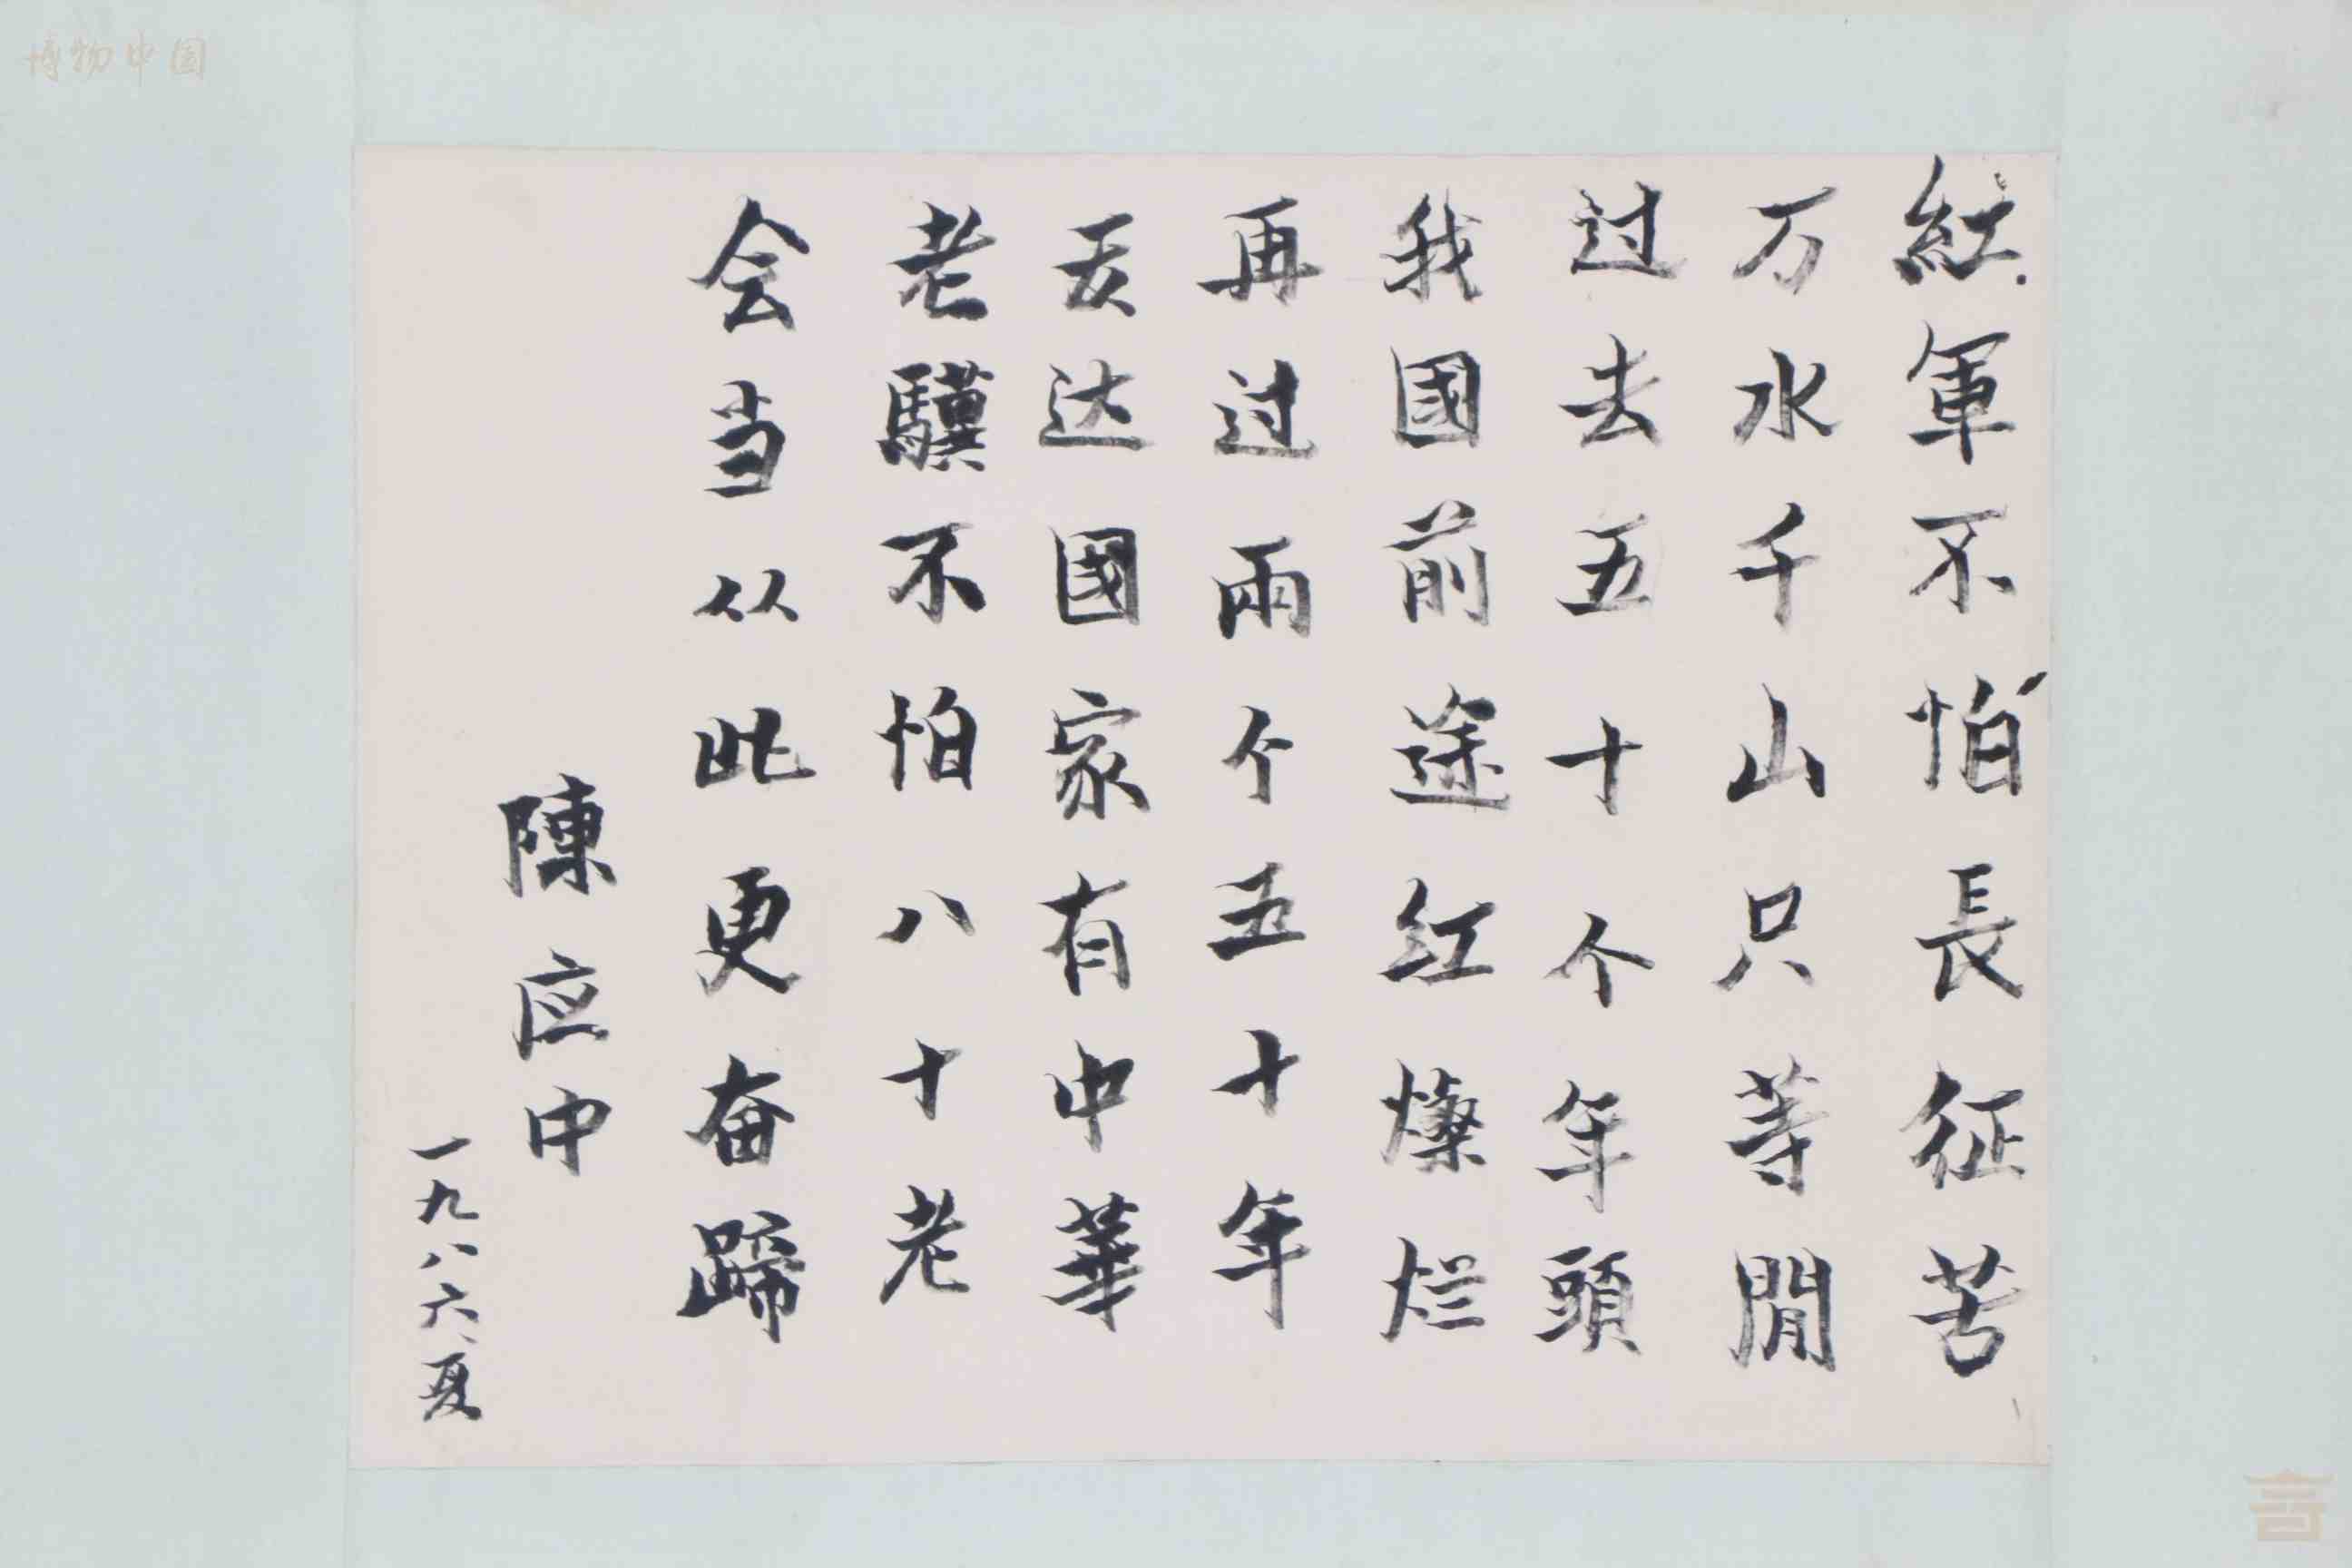 紅軍不怕長征苦
万水千山只等閒
过去五十个年頭
我國前途红燦烂
再过兩个五十年
发达國家有中華
老驥不怕八十老
会当从此更奋蹄
陳应中
一九八六、夏
博物中国